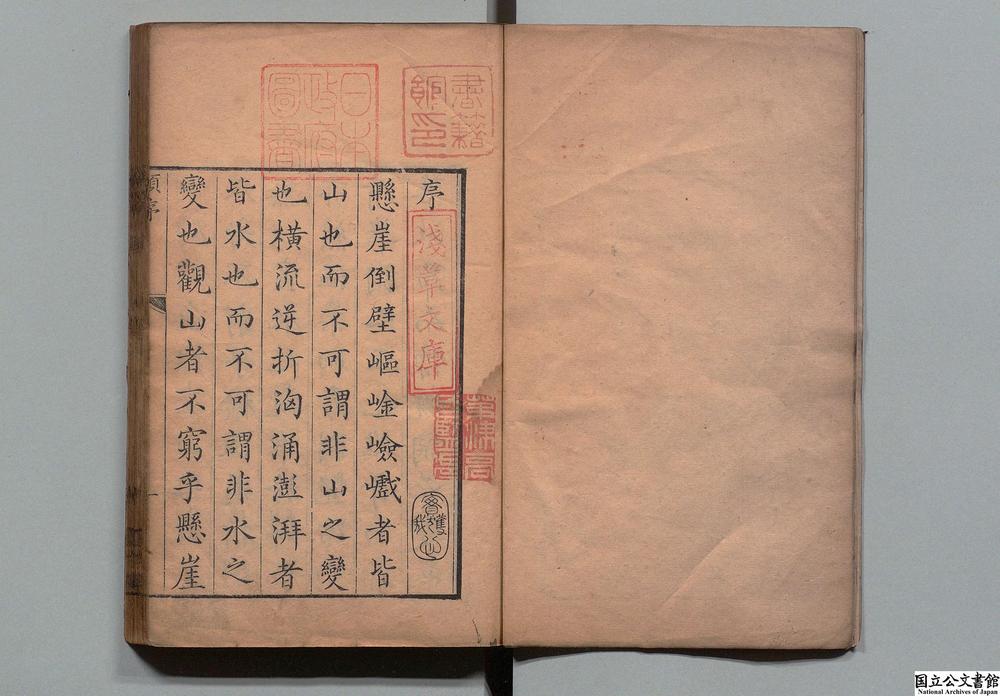 書籍
館印
日本
政府
圖書
序
淺草文庫
懸崖倒壁嶇崯嶮巇者皆
山也而不可謂非山之變
也橫流逆折洶涌澎湃者
皆水也而不可謂非水之
變也觀山者不窮乎懸崖
序
一
国立公文書館
National Archives of Japan